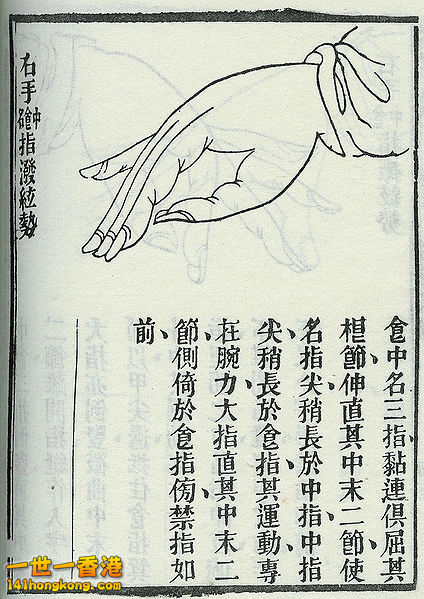 右手食中名指潑絃勢
食中名三指黏連俱屈其
根節伸直其中末二節使
名指尖稍長於中指中指
尖稍長於食指其運動專
在腕力大指直其中末二
節側倚於食指傍禁指如
前
一世一香港
141hongkong.com